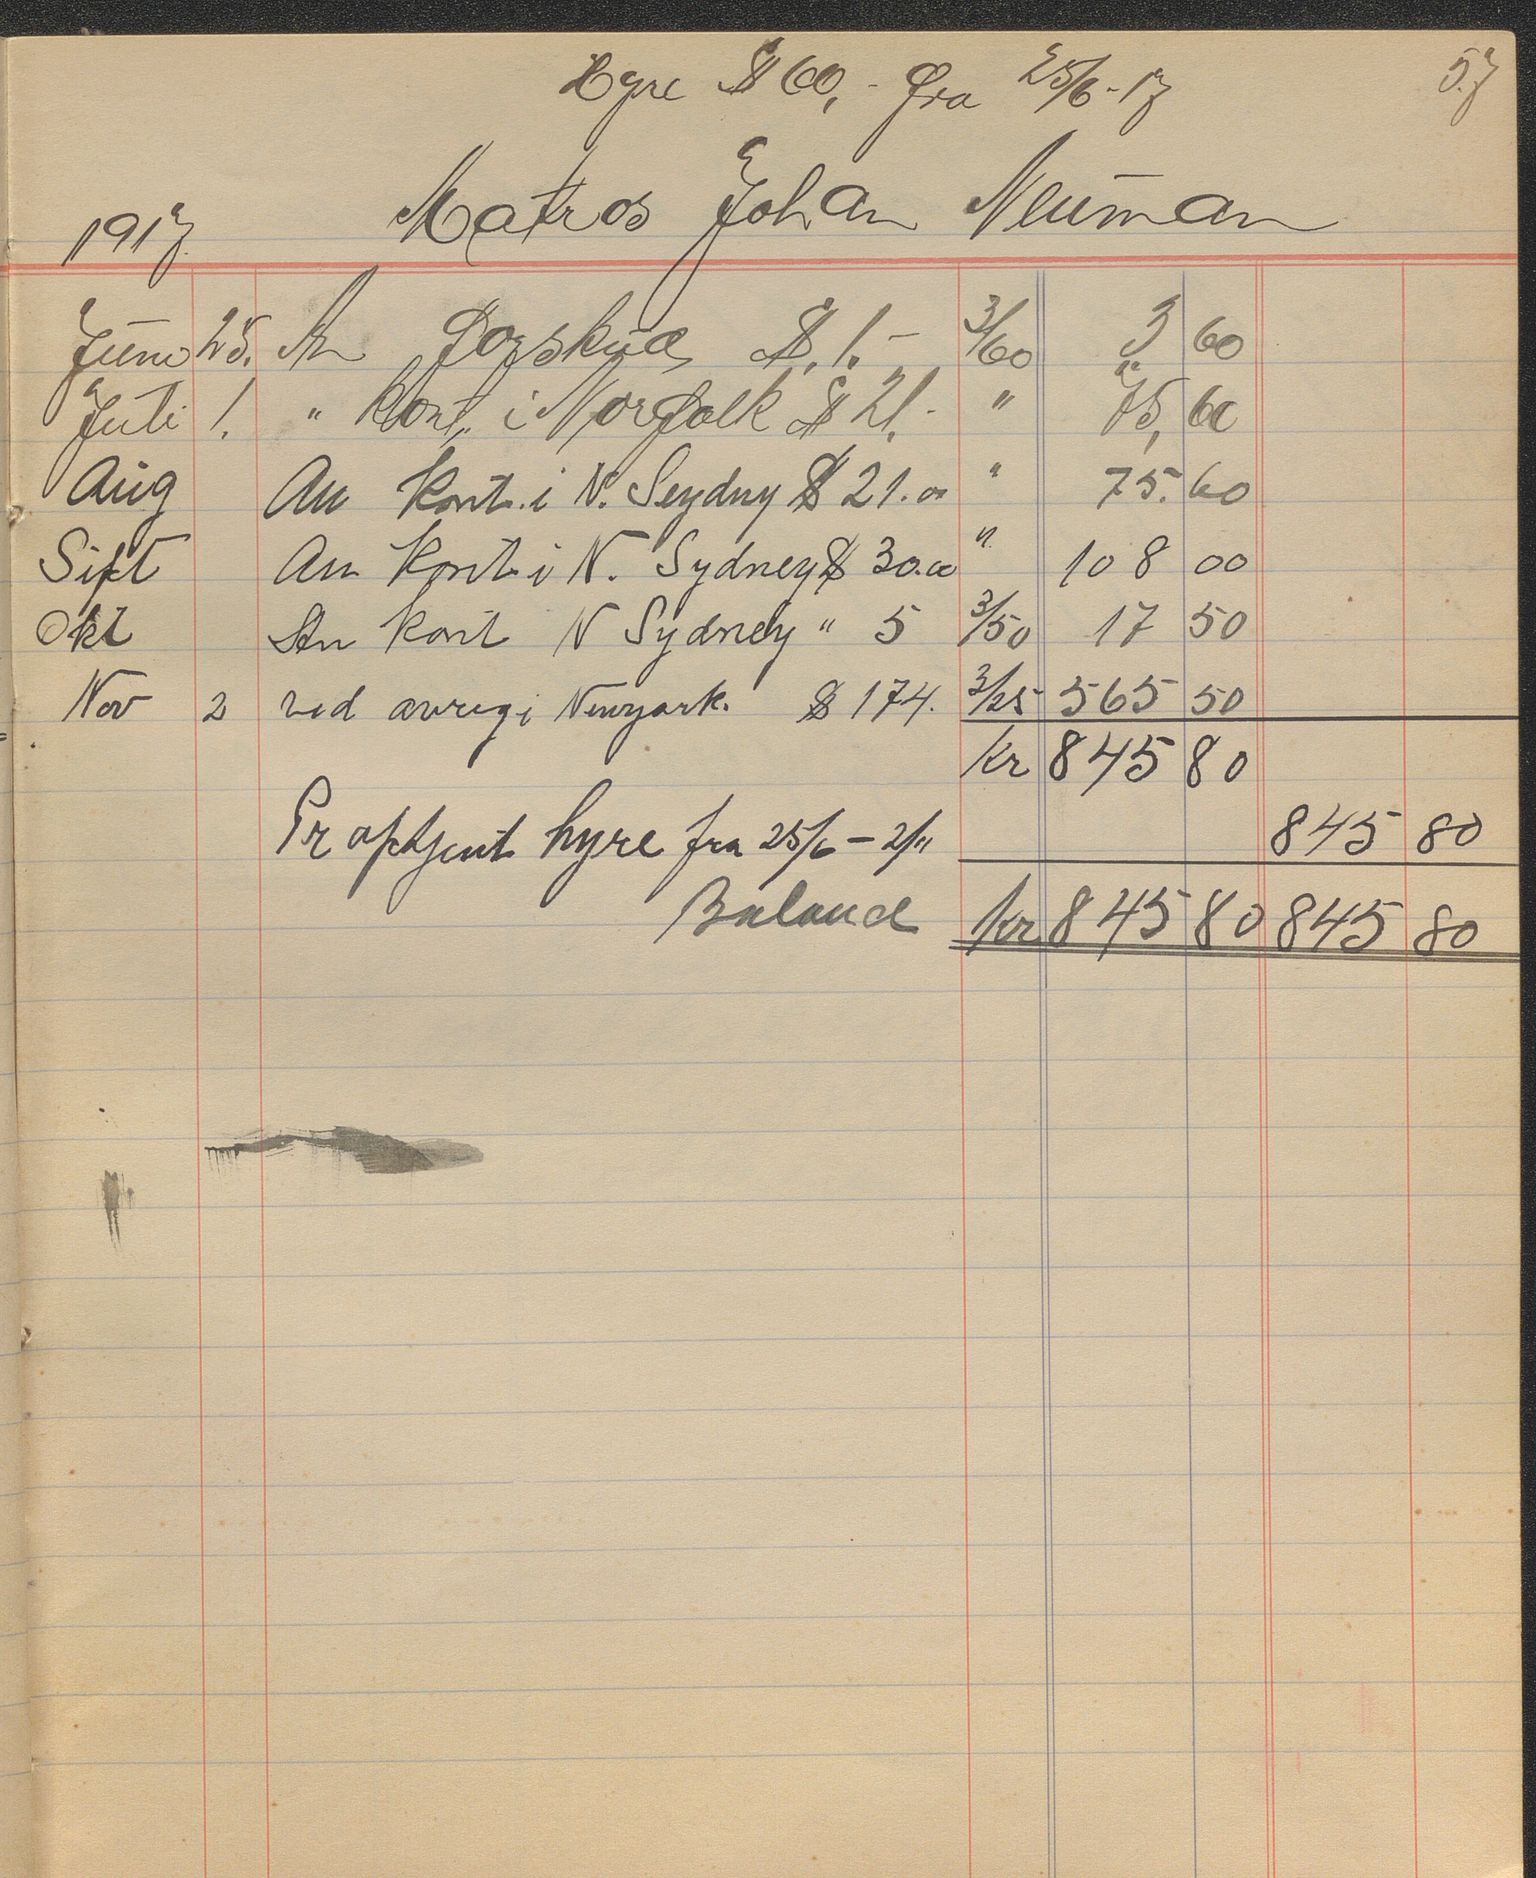 Hyre $ 60,- fra 25/6-17
57
1917 Matros Johan Neuman
Juni 25. An Forskud $ 1.- 3/60 3 60
Juli 1. " Kont. i Norfolk $ 21.- " 75, 60
Aug An Kont. i N. Seydny $ 21.00 " 75. 60
Sept An Kont i N. Sydney $ 30.00 " 108 00
Okt An Kont N Sydney " 5 3/50 17 50
Nov 2 ved avreg i Newyork. $ 174. 3/25 565 50
Kr 845 80
Pr optjent hyre fra 25/6 - 2/11 845 80
Balance Kr 845 80 845 80